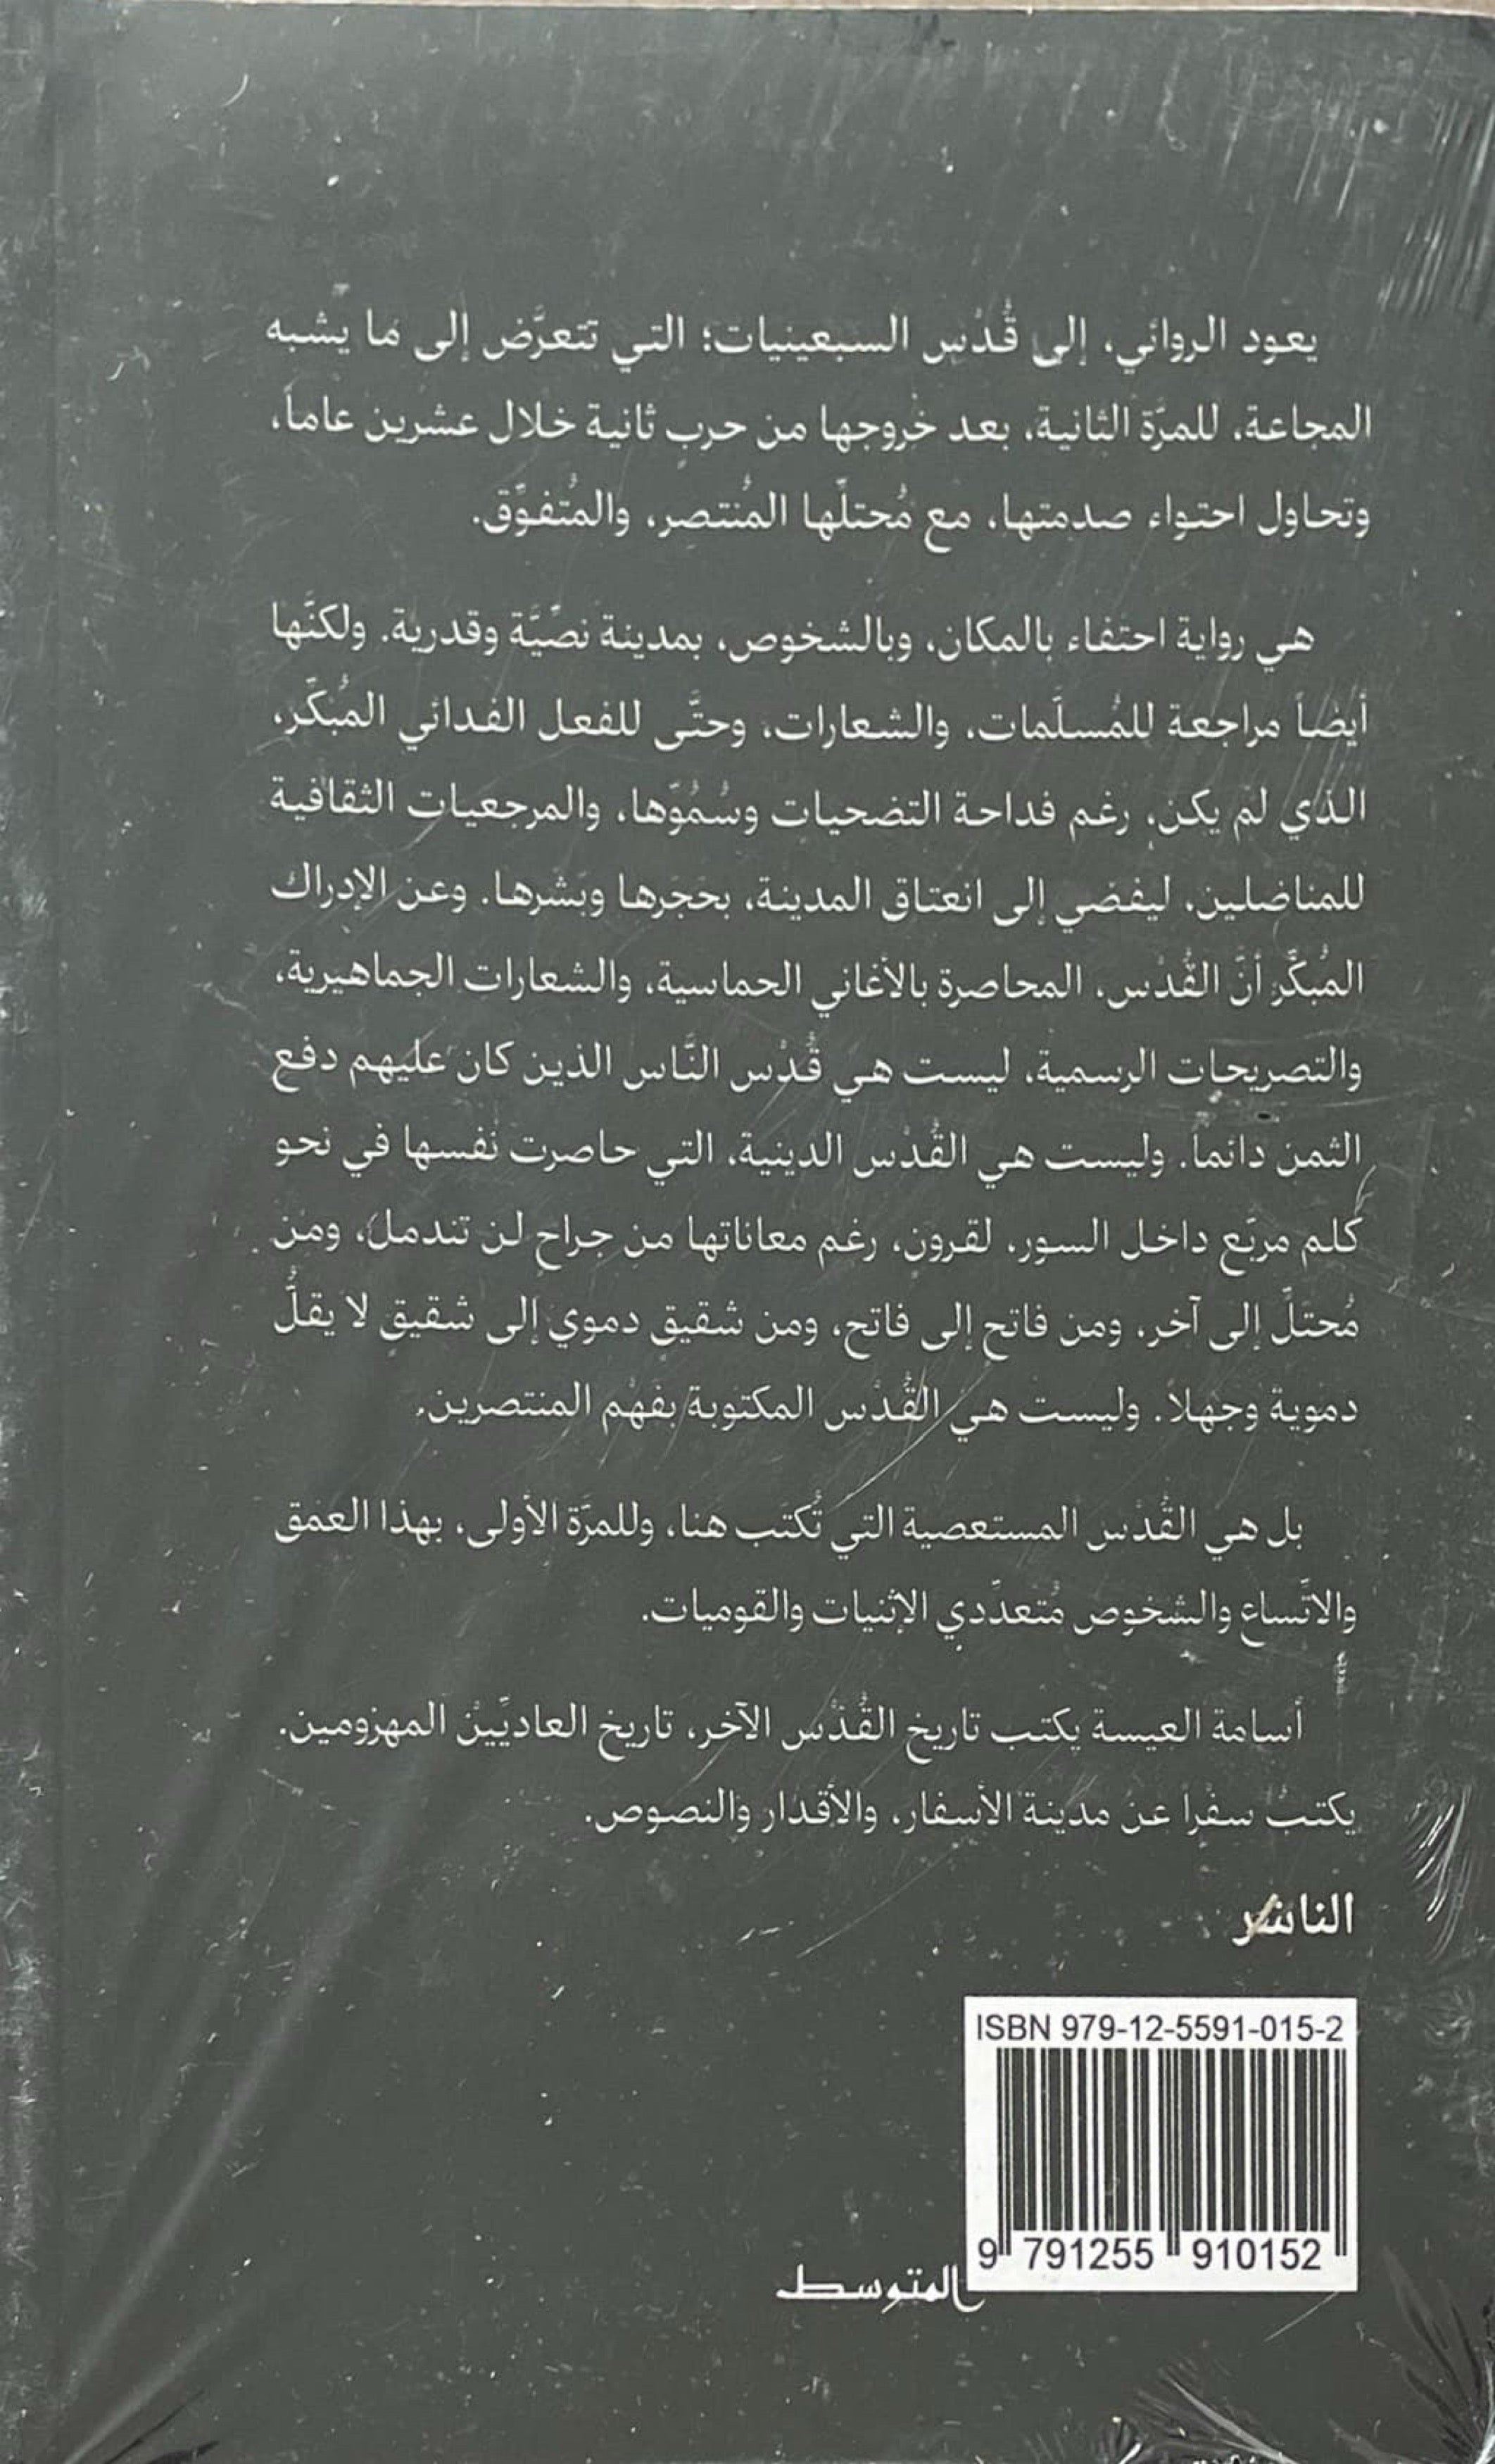 يعود الروائي، إلى قُدْس السبعينيات؛ التي تتعرَّض إلى ما يشبه
المجاعة، للمرّة الثانية، بعد خروجها من حرب ثانية خلال عشرين عاماً،
وتحاول احتواء صدمتها، مع مُحتلِّها المُنتصر، والمُتفوِّق.
هي رواية احتفاء بالمكان، وبالشخوص، بمدينة نصِّيَّة وقدرية. ولكنَّها
أيضاً مراجعة للمُسلَّمات، والشعارات، وحتَّى للفعل الفدائي المُبكِّر،
الذي لم يكن، رغم فداحة التضحيات وسُمُوّها، والمرجعيات الثقافية
للمناضلين، ليفضي إلى انعتاق المدينة، بحَجَرها وبَشرها. وعن الإدراك
المُبكِّر أنَّ القُدْس، المحاصرة بالأغاني الحماسية، والشعارات الجماهيرية،
والتصريحات الرسمية، ليست هي قُدْس النَّاس الذين كان عليهم دفع
الثمن دائماً. وليست هي القُدْس الدينية، التي حاصرت نفسها في نحو
كلم مربّع داخل السور، لقرون، رغم معاناتها من جراح لن تندمل، ومن
مُحتلِّ إلى آخر، ومن فاتح إلى فاتح، ومن شقيق دموي إلى شقيق لا يقلُّ
دموية وجهلاً. وليست هي القُدْس المكتوبة بفهم المنتصرين.
بل هي القُدْس المستعصية التي تُكتَب هنا، وللمرّة الأولى، بهذا العمق
والاتّساع والشخوص مُتعدِّدي الإثنيات والقوميات.
أسامة العيسة يكتب تاريخ القُدْس الآخر، تاريخ العاديِّيْن المهزومين.
يكتبُ سفْراً عن مدينة الأسفار، والأقدار والنصوص.
الناشر
ISBN 979-12-5591-015-2
9 791255 910152
المتوسط